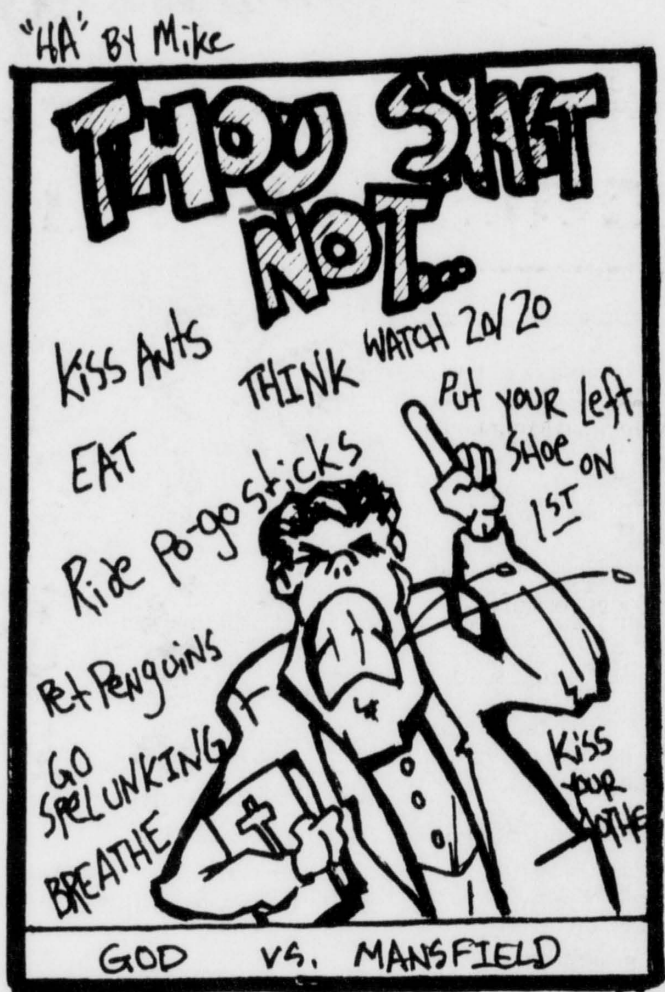 "HA" BY Mike
THOU SHALT
NOT...
Kiss ANTS
THINK
WATCH 20/20
EAT
Put your Left
SHOE ON
1ST
Ride po-go sticks
Pet Penguins
GO
SPELUNKING
BREATHE
Kiss
your
GOD VS. MANSFIELD